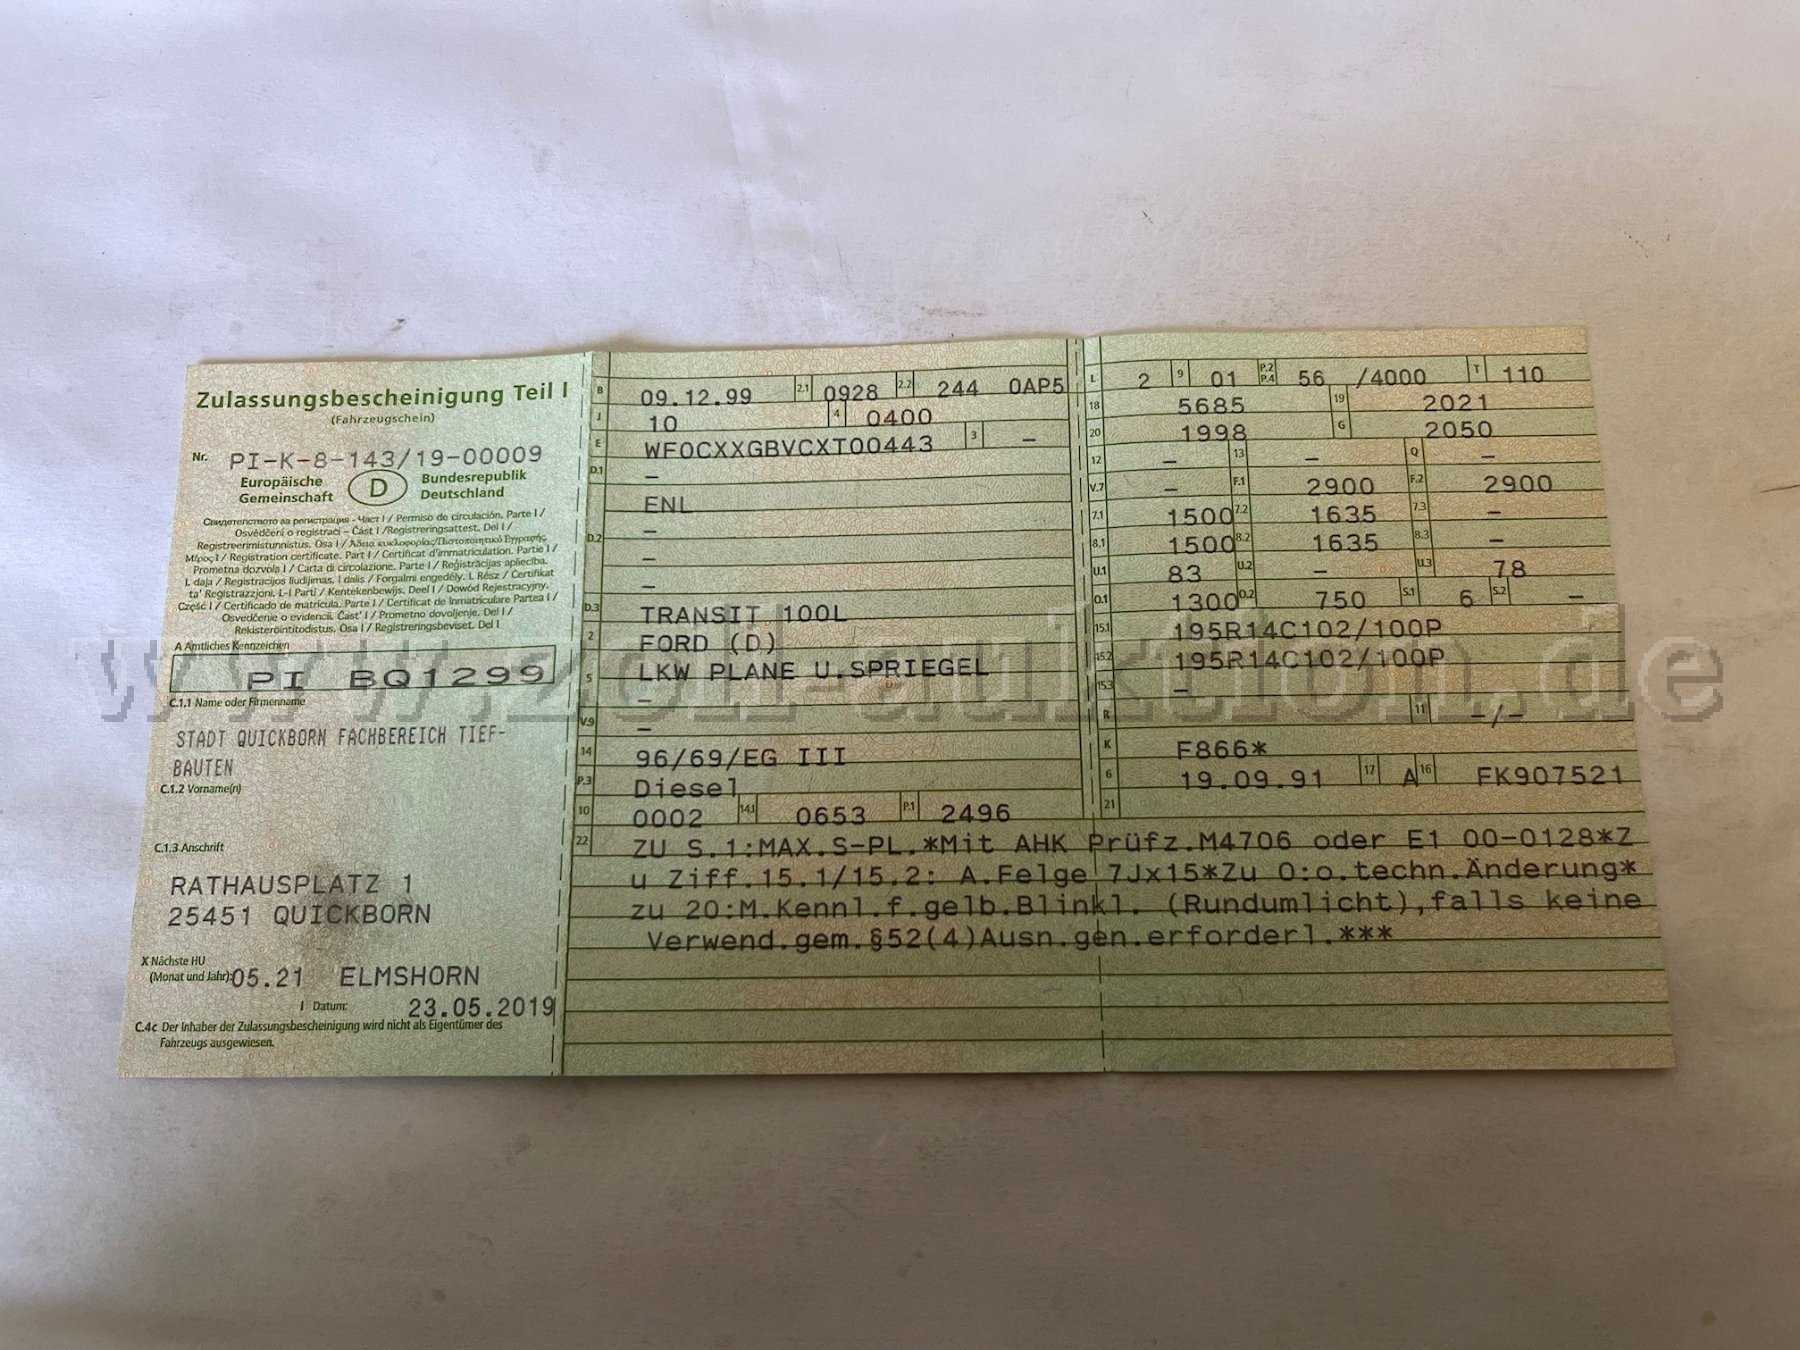 Zulassungsbescheinigung Teil I
(Fahrzeugschein)
Nr. PI-K-8-143/19-00009
Europäische Gemeinschaft D Bundesrepublik Deutschland
Свидетелството за регистрация - Част I / Permiso de circulación. Parte I /
Osvědčení o registraci – Část I / Registreringsattest. Del I /
Registreerimistunnistus. Osa I / Άδεια κυκλοφορίας/Πιστοποιητικό Εγγραφής
Μέρος I / Registration certificate. Part I / Certificat d'immatriculation. Partie I /
Prometna dozvola I / Carta di circolazione. Parte I / Reģistrācijas apliecība.
I. daļa / Registracijos liudijimas. I dalis / Forgalmi engedély. I. Rész / Ċertifikat
ta' Reġistrazzjoni. L-I Parti / Kentekenbewijs. Deel I / Dowód Rejestracyjny.
Część I / Certificado de matrícula. Parte I / Certificat de înmatriculare Partea I /
Osvedčenie o evidencii. Časť I / Prometno dovoljenje. Del I /
Rekisteröintitodistus. Osa I / Registreringsbeviset. Del I
A Amtliches Kennzeichen
PI BQ1299
C.1.1 Name oder Firmenname
STADT QUICKBORN FACHBEREICH TIEF-
BAUTEN
C.1.2 Vorname(n)
C.1.3 Anschrift
RATHAUSPLATZ 1
25451 QUICKBORN
X Nächste HU
(Monat und Jahr): 05.21 ELMSHORN
I Datum: 23.05.2019
C.4c Der Inhaber der Zulassungsbescheinigung wird nicht als Eigentümer des
Fahrzeugs ausgewiesen.
B 09.12.99 2.1 0928 2.2 244 0AP5
J 10 4 0400
E WF0CXXGBVCXT00443 3 –
D.1 –
ENL
D.2 –
–
–
D.3 TRANSIT 100L
2 FORD (D)
5 LKW PLANE U.SPRIEGEL
–
V.9 –
14 96/69/EG III
P.3 Diesel
10 0002 14.1 0653 P.1 2496
L 2 9 01 P.2 P.4 56 /4000 T 110
18 5685 19 2021
20 1998 G 2050
12 – 13 – Q –
V.7 – F.1 2900 F.2 2900
7.1 1500 7.2 1635 7.3 –
8.1 1500 8.2 1635 8.3 –
U.1 83 U.2 – U.3 78
O.1 1300 O.2 750 S.1 6 S.2 –
15.1 195R14C102/100P
15.2 195R14C102/100P
15.3 –
R 11 –/–
K F866*
6 19.09.91 17 A 16 FK907521
21
22 ZU S.1:MAX.S-PL.*Mit AHK Prüfz.M4706 oder E1 00-0128*Z
u Ziff.15.1/15.2: A.Felge 7Jx15*Zu O:o.techn.Änderung*
zu 20:M.Kennl.f.gelb.Blinkl. (Rundumlicht),falls keine
Verwend.gem.§52(4)Ausn.gen.erforderl.***
www.zoll-auktion.de